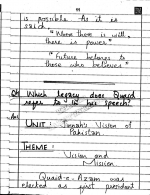 is possible. As it is
said,
"Where there is will,
there is power"
"Future belongs to
those who believes"
Q: Which legacy does Quaid
refer to in his speech?
Ans
UNIT: Jinnah's Vision of
Pakistan
THEME:
Vision and
Mission
Quaid-e-Azam was
elected as first president